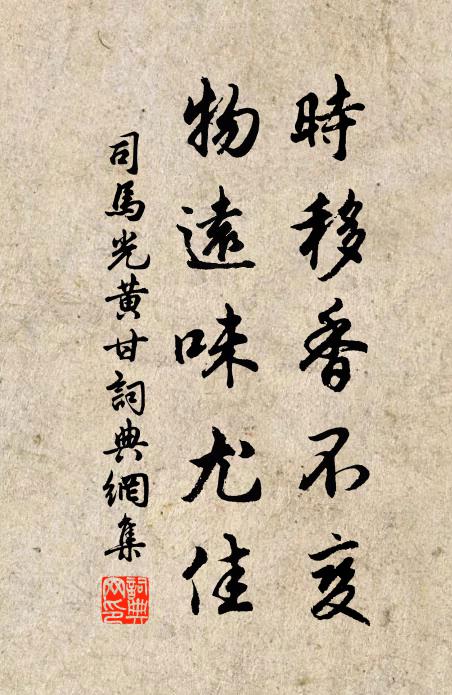 時移香不变
物遠味尤佳
司馬光黄甘詞典網集
詞典
网印